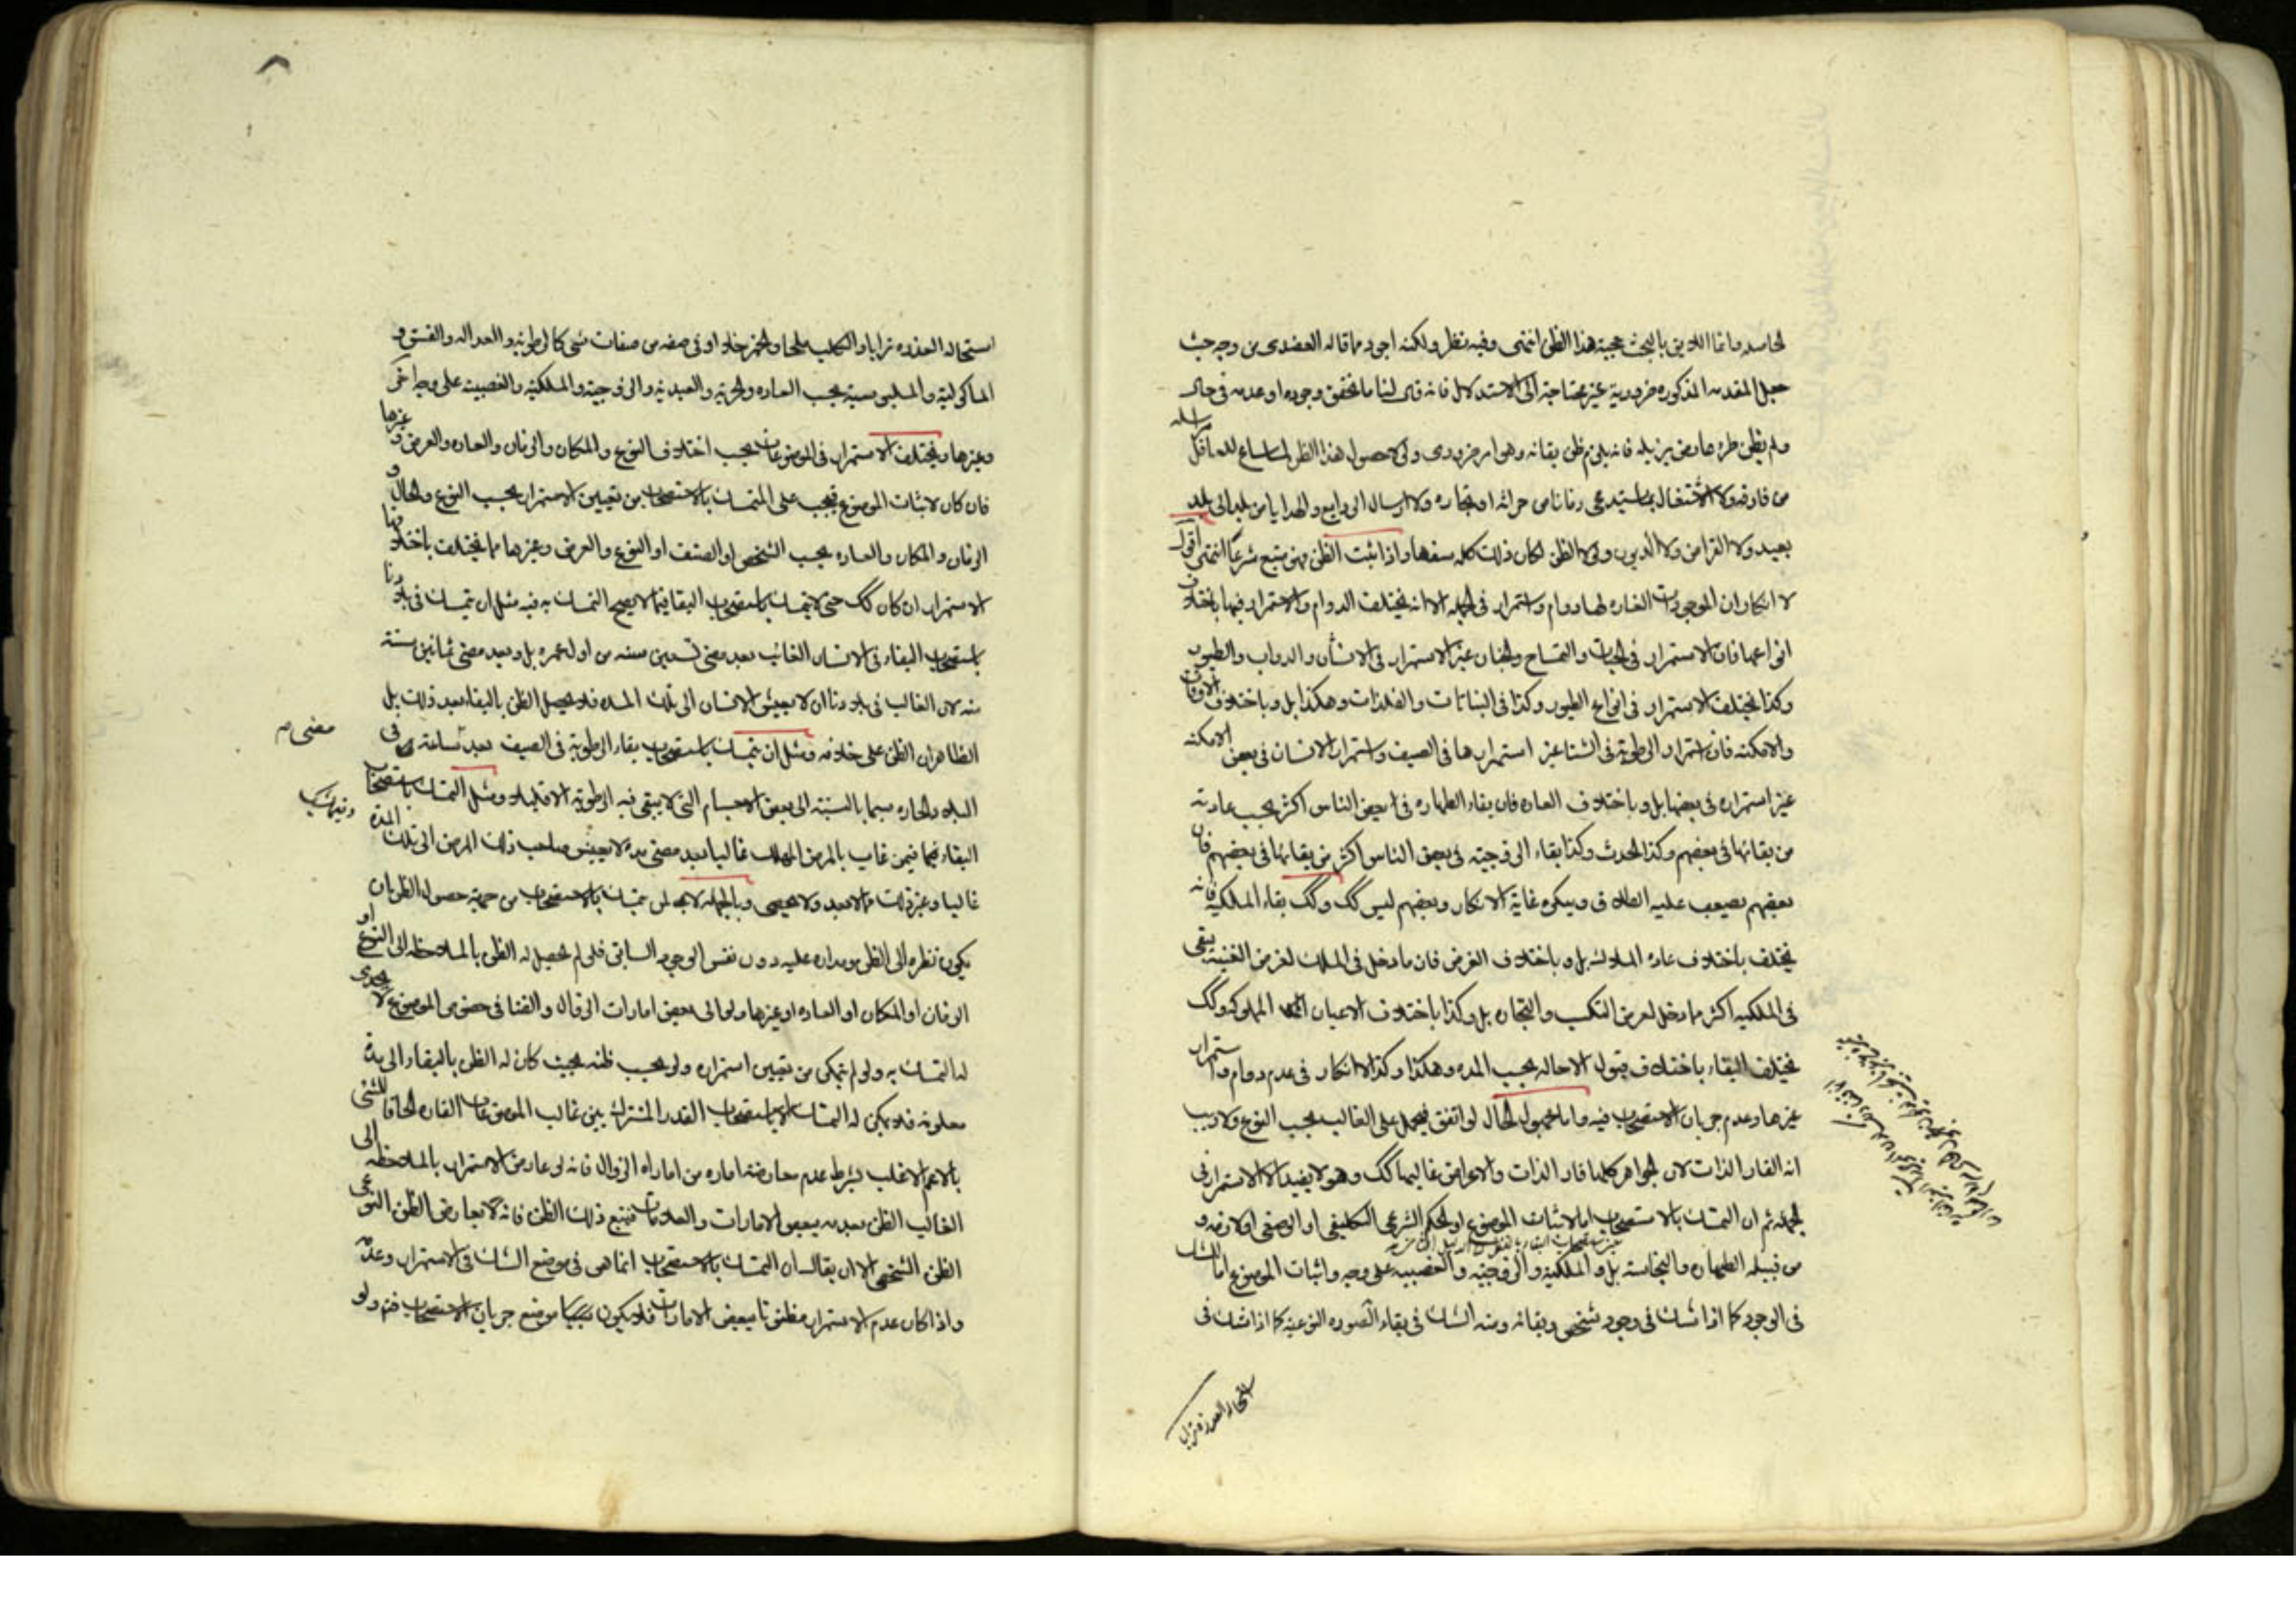 الحاصله وانما اللايق بالبحث حجية هذا الظن انتهى وفيه نظر ولكنه اجود مما قاله العضدى من وجه حيث
جعل المقدمه المذكوره ضرورية غير محتاجة الى الاستدلال فانه قال لنا ما تحقق وجوده او عدمه فى حال
ولم يظن طرو معارض يزيله فانه يلزم ظن بقائه وهو امر ضرورى ولولا حصول هذا الظن لما ساغ للعاقل مراسله
من فارقه ولا الاشتغال بما يستدعى زمانا من حراثه او تجاره ولا ارسال الودايع والهدايا من بلد الى بلد
بعيد ولا القراض ولا الديون ولولا الظن لكان ذلك كله سفها واذا ثبت الظن فهو متبع شرعا انتهى اقول
لا انكار ان الموجودات القاره لها دوام واستمرار فى الجمله الا انه يختلف الدوام والاستمرار فيها باختلاف
انواعها فان الاستمرار فى الحيات والتمساح والجان غير الاستمرار فى الانسان والدواب والطيور
وكذا يختلف الاستمرار فى انواع الطيور وكذا فى النباتات والفلذات وهكذا بل وباختلاف الاوقات
والامكنه فان استمرار الرطوبة فى الشتا غير استمرارها فى الصيف واستمرار الانسان فى بعض الامكنه
غير استمراره فى بعضها بل وباختلاف العاده فان بقاء الطهاره فى بعض الناس اكثر بحسب عادته
من بقائها فى بعضهم وكذا الحدث وكذا بقاء الزوجيه فى بعض الناس اكثر من بقائها فى بعضهم فان
بعضهم يصعب عليه الطلاق وينكره غاية الانكار وبعضهم ليس كك وكك بقاء الملكيه فانه
يختلف باختلاف عاده الملاك بل وباختلاف الغرض فان ما دخل فى الملك لغرض القنيه يبقى
فى الملكيه اكثر مما دخل لغرض التكسب والتجاره بل وكذا باختلاف الاعيان المملوكه وكك
يختلف البقاء باختلاف قبول الاحاله بحسب المده وهكذا وكذا لا انكار فى عدم دوام واستمرار
غيرها وعدم جريان الاستصحاب فيه واما مجهول الحال لو اتفق فيحمل على الغالب بحسب النوع ولا ريب
انه القار الذات لان الجواهر كلها قار الذات والاعراض غالبها كك وهو لا يفيد الا الاستمرار فى
الجمله ثم ان التمسك بالاستصحاب اما لاثبات الموضوع او الحكم الشرعى التكليفى او الوضعى
من قبيله الطهاره والنجاسة بل والملكيه والزوجيه والغصبيه على وجه واثبات الموضوع اما للشك
فى الوجود كما اذا شك فى وجود شخص وبقائه ومنه الشك فى بقاء الصوره النوعيه كما اذا شك فى
استحاله العذره ترابا والكلب ملحا والخمر خلا او فى صفه من صفات شى كالرطوبه والعداله والفسق و
الماكوليه والملبوسيه بحسب العاده والحريه والعبديه والزوجيه والملكيه والغصبيه على وجه اخر
وغيرها ويختلف الاستمرار فى الموضوعات بحسب اختلاف النوع والمكان والزمان والعاده والغرض وغيرها
فان كان لاثبات الموضوع فيجب على المتمسك بالاستصحاب من تعيين الاستمرار بحسب النوع والحال و
الزمان والمكان والعاده بحسب الشخص او الصنف او النوع والغرض وغيرها مما يختلف باختلافها
الاستمرار ان كان كك حتى لا يتمسك باستصحاب البقا فيما لا يصح التمسك به فيه مثل ان يتمسك فى بلادنا
باستصحاب البقاء فى الانسان الغائب بعد مضى تسعين سنه من اول عمره بل وبعد مضى ثمانين سنة
منه لان الغالب فى بلادنا ان لا يعيش الانسان الى تلك المده فلا يحصل الظن بالبقاء بعد ذلك بل
الظاهر ان الظن على خلافه ومثل ان يتمسك باستصحاب بقاء الرطوبة فى الصيف بعد ساعة فى
مضى صه
البلاد الحاره سيما بالنسبة الى بعض الاجسام التى لا يبقى فيه الرطوبة الا قليلا ومثل التمسك باستصحاب
البقاء فيما فيمن غاب بالمرض المهلك غالبا بعد مضى مدة لا يعيش صاحب ذلك المرض الى تلك المدة
غالبا وغير ذلك مما لا يعد ولا يحصى وبالجمله لابد لمن يتمسك بالاستصحاب من جهة حصول الظن بان
يكون نظره الى الظن ومداره عليه دون نفس الوجود السابق فلو لم يحصل له الظن بالملاحظه الى النوع او
الزمان او المكان او العاده او غيرها ولو الى بعض امارات الزوال والفنا فى خصوص الموضوع لا يجدى
له التمسك به ولو لم يتمكن من تعيين استمراره ولو بحسب ظنه بحيث كان له الظن بالبقاء الى مدة
معلومه فلا يمكن له التمسك الا باستصحاب القدر المشترك بين غالب الموضوعات القاره الحاقا للشئ
بالاعم الاغلب بشرط عدم معارضه اماره من امارات الزوال فانه لو عارض الاستمرار بالملاحظه الى
الغالب الظن بعدمه ببعض الامارات والعلامات فيتبع ذلك الظن فانه لا يعارض الظن النوعى
الظن الشخصى الا ان يقال ان التمسك بالاستصحاب انما هو فى موضع الشك فى الاستمرار وعدمه
واذا كان عدم الاستمرار مظنونا ببعض الامارات فلا يكون موضع جريان الاستصحاب فتم ولو